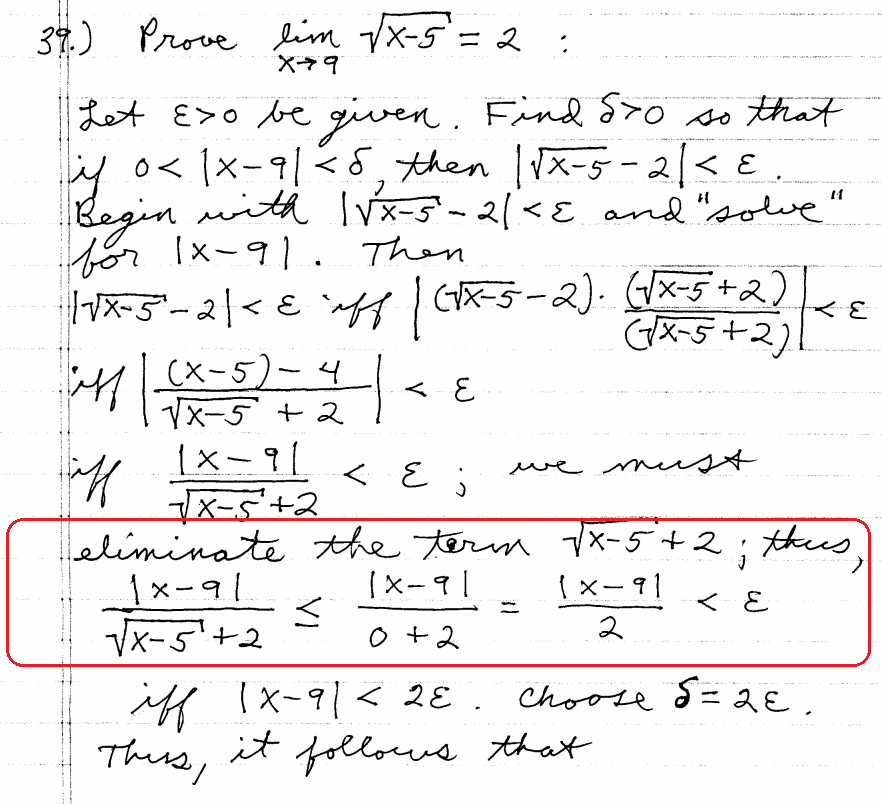 39.) Prove lim x→9 √(x-5) = 2 :
Let ε>0 be given. Find δ>0 so that
if 0<|x-9|<δ, then |√(x-5) - 2| < ε.
Begin with |√(x-5) - 2| < ε and "solve"
for |x-9|. Then
|√(x-5) - 2| < ε iff |(√(x-5) - 2)· (√(x-5) + 2)/(√(x-5) + 2)| < ε
iff |((x-5) - 4)/(√(x-5) + 2)| < ε
iff |x-9|/(√(x-5) + 2) < ε ; we must
eliminate the term √(x-5) + 2 ; thus,
|x-9|/(√(x-5) + 2) ≤ |x-9|/(0 + 2) = |x-9|/2 < ε
iff |x-9| < 2ε. Choose δ = 2ε.
Thus, it follows that